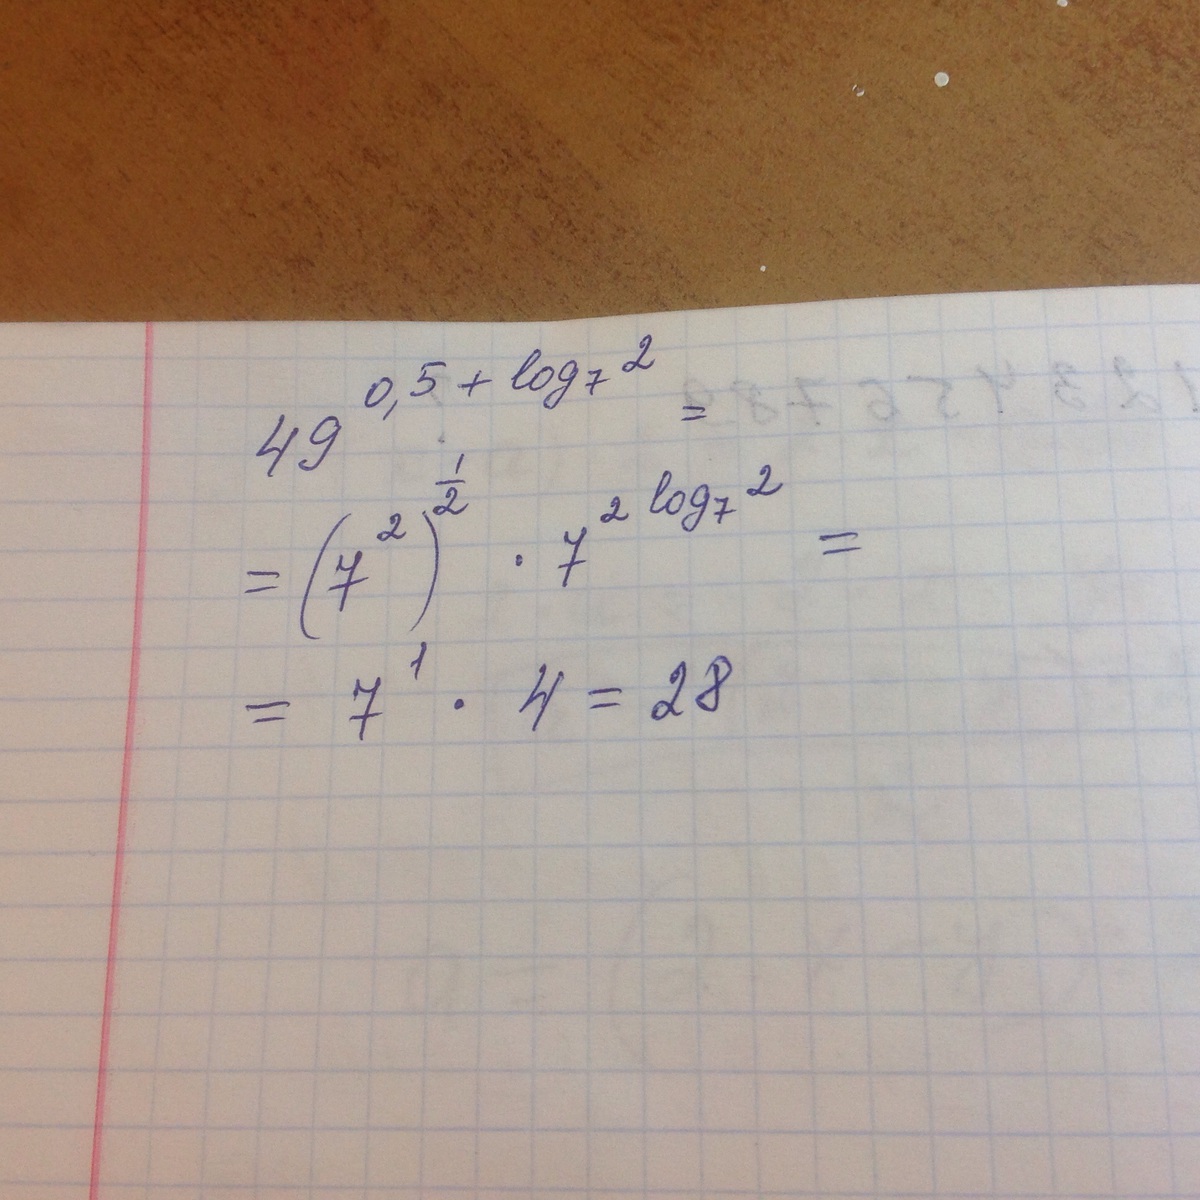 49^{0,5 + log_7 2} =
= (7^2)^{1/2} · 7^{2 log_7 2} =
= 7^1 · 4 = 28